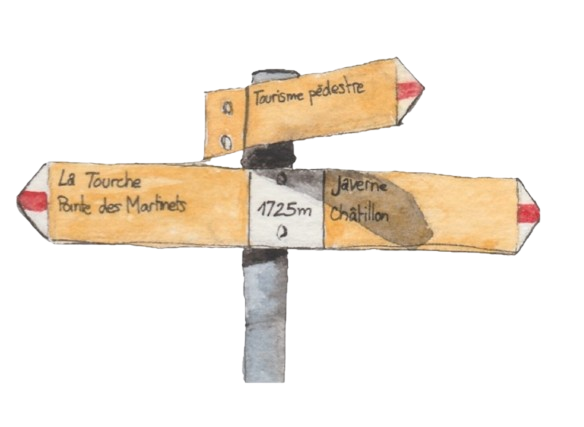 Tourisme pédestre
La Tourche
Pointe des Martinets
1725m
Javerne
Châtillon